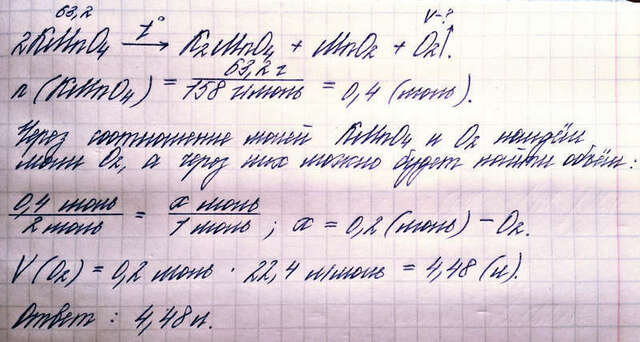 63,2 V-?
2KMnO4 t° → K2MnO4 + MnO2 + O2↑.
n (KMnO4) = 63,2 г / 158 г/моль = 0,4 (моль).
Через соотношение молей KMnO4 и O2 найдём
моли O2, а через них можно будет найти объём:
0,4 моль / 2 моль = x моль / 1 моль ; x = 0,2 (моль) – O2.
V (O2) = 0,2 моль · 22,4 л/моль = 4,48 (л).
Ответ : 4,48 л.